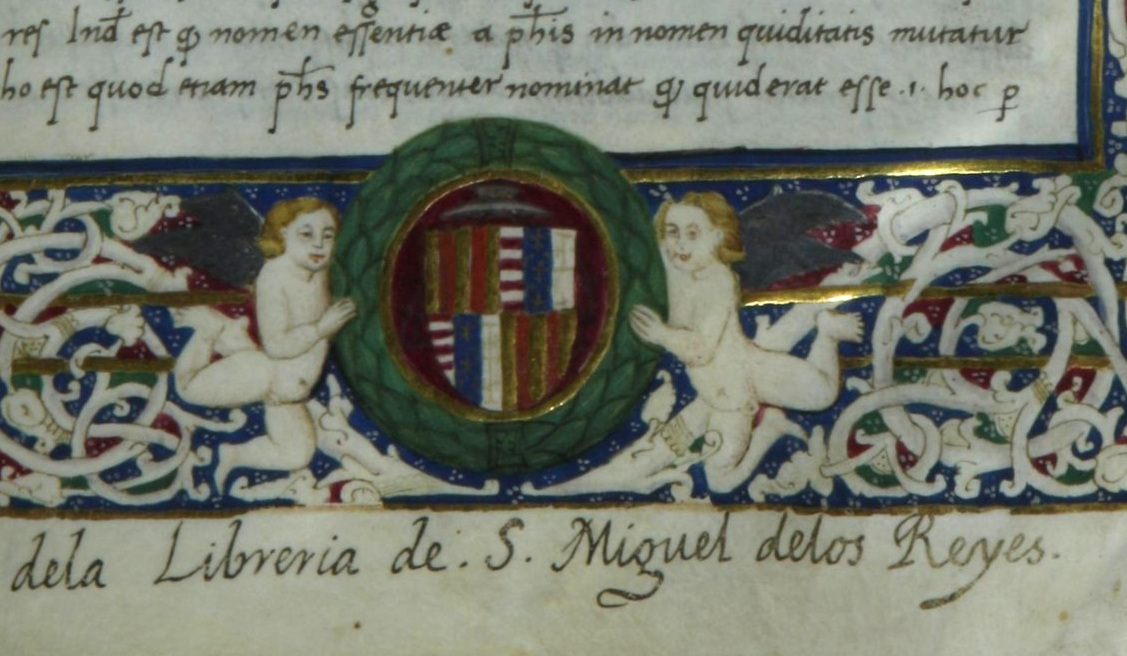 res Inđ est ꝙ nomen essentiæ a ph̄is in nomen quiditatis mutatur
ho est quod etiam ph̄s frequenter nominat ꝙ quid erat esse .i. hoc ꝑ
dela Libreria de. S. Miguel delos Reyes.